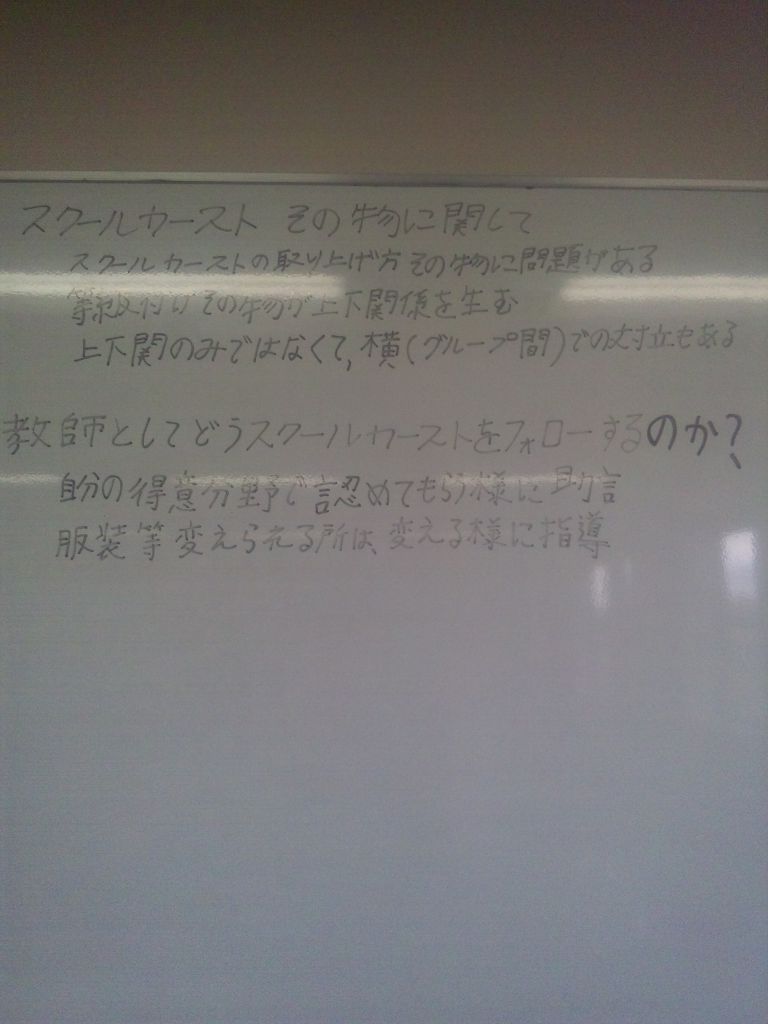 スクールカースト その物に関して
スクールカーストの取り上げ方その物に問題がある
等級付けその物が上下関係を生む
上下関のみではなくて,横(グループ間)での対立もある
教師としてどうスクールカーストをフォローするのか?
自分の得意分野で認めてもらう様に助言
服装等変えられる所は、変える様に指導